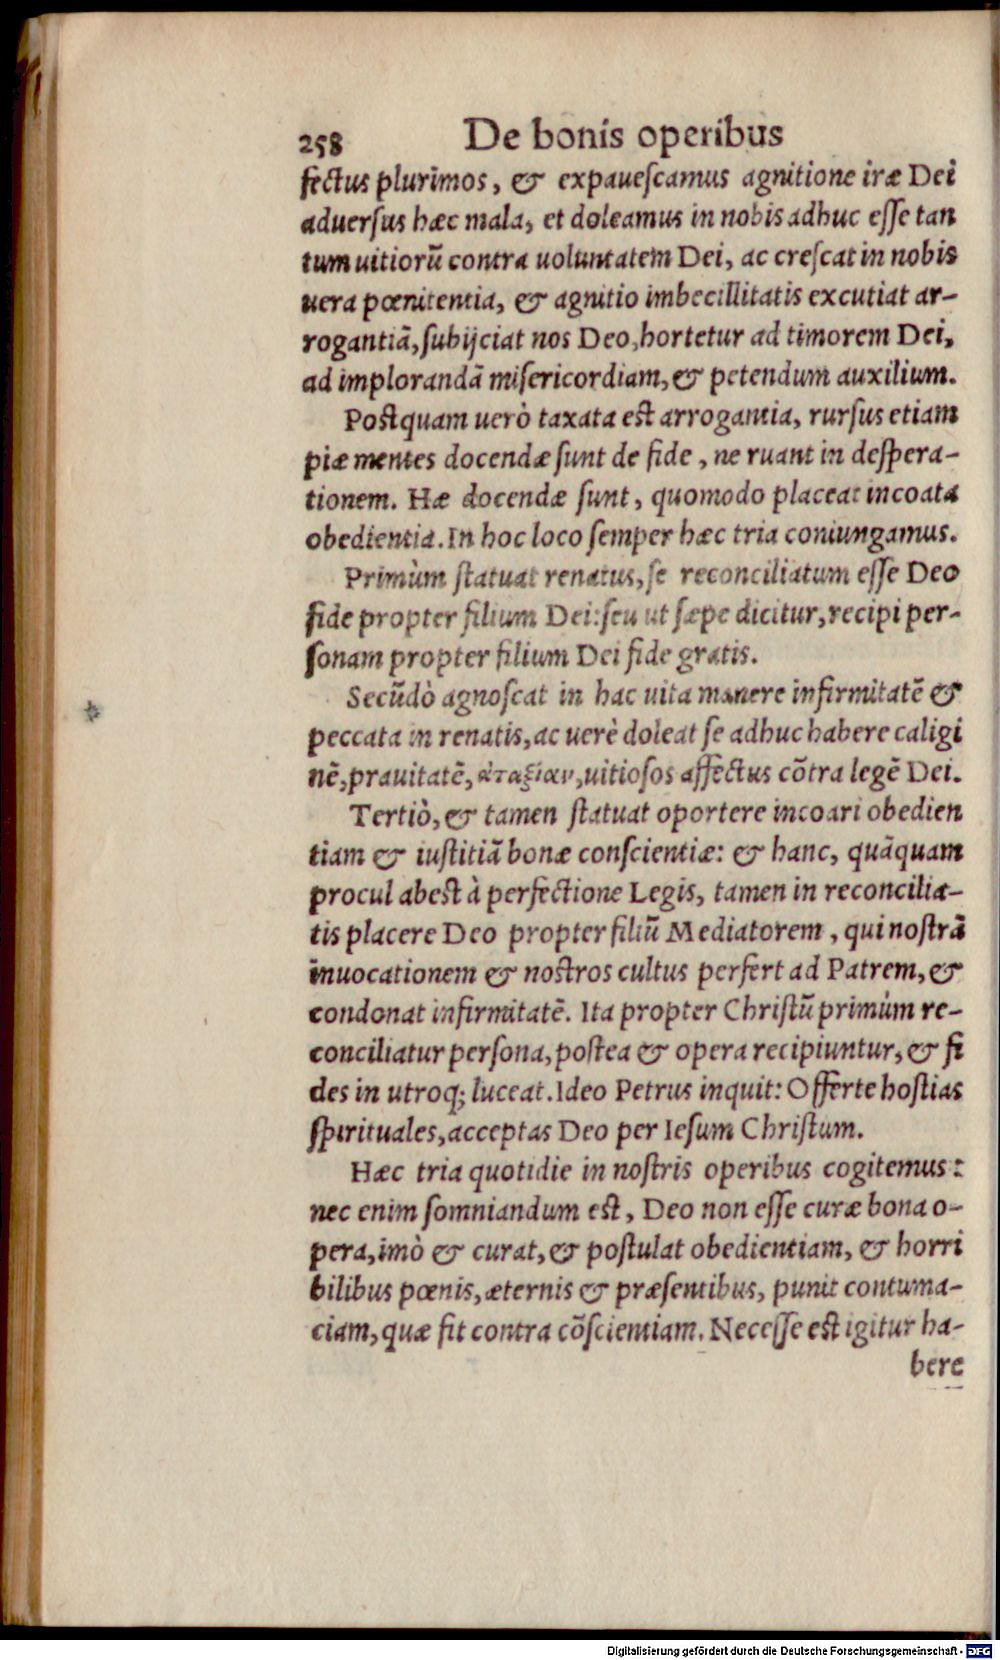 258 De bonis operibus
fectus plurimos, & expauescamus agnitione iræ Dei
aduersus hæc mala, et doleamus in nobis adhuc esse tan
tum uitiorū contra uoluntatem Dei, ac crescat in nobis
uera pœnitentia, & agnitio imbecillitatis excutiat ar-
rogantiā, subijciat nos Deo, hortetur ad timorem Dei,
ad implorandā misericordiam, & petendum auxilium.
Postquam uerò taxata est arrogantia, rursus etiam
piæ mentes docendæ sunt de fide, ne ruant in despera-
tionem. Hæ docendæ sunt, quomodo placeat incoata
obedientia. In hoc loco semper hæc tria coniungamus.
Primùm statuat renatus, se reconciliatum esse Deo
fide propter filium Dei: seu ut sæpe dicitur, recipi per-
sonam propter filium Dei fide gratis.
Secūdò agnoscat in hac uita manere infirmitatē &
peccata in renatis, ac uerè doleat se adhuc habere caligi
nē, prauitatē, ἀταξίαν, uitiosos affectus cōtra legē Dei.
Tertiò, & tamen statuat oportere incoari obedien
tiam & iustitiā bonæ conscientiæ: & hanc, quāquam
procul abest à perfectione Legis, tamen in reconcilia-
tis placere Deo propter filiū Mediatorem, qui nostrā
inuocationem & nostros cultus perfert ad Patrem, &
condonat infirmitatē. Ita propter Christū primùm re-
conciliatur persona, postea & opera recipiuntur, & fi
des in utroq; luceat. Ideo Petrus inquit: Offerte hostias
spirituales, acceptas Deo per Iesum Christum.
Hæc tria quotidie in nostris operibus cogitemus:
nec enim somniandum est, Deo non esse curæ bona o-
pera, imò & curat, & postulat obedientiam, & horri
bilibus pœnis, æternis & præsentibus, punit contuma-
ciam, quæ fit contra cōscientiam. Necesse est igitur ha-
bere
Digitalisierung gefördert durch die Deutsche Forschungsgemeinschaft - DFG